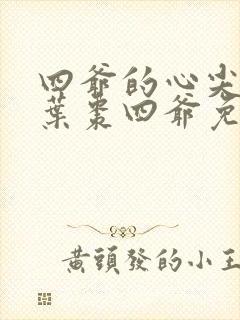 四爺的心尖
葉棗四爺免
黃頭發的小王